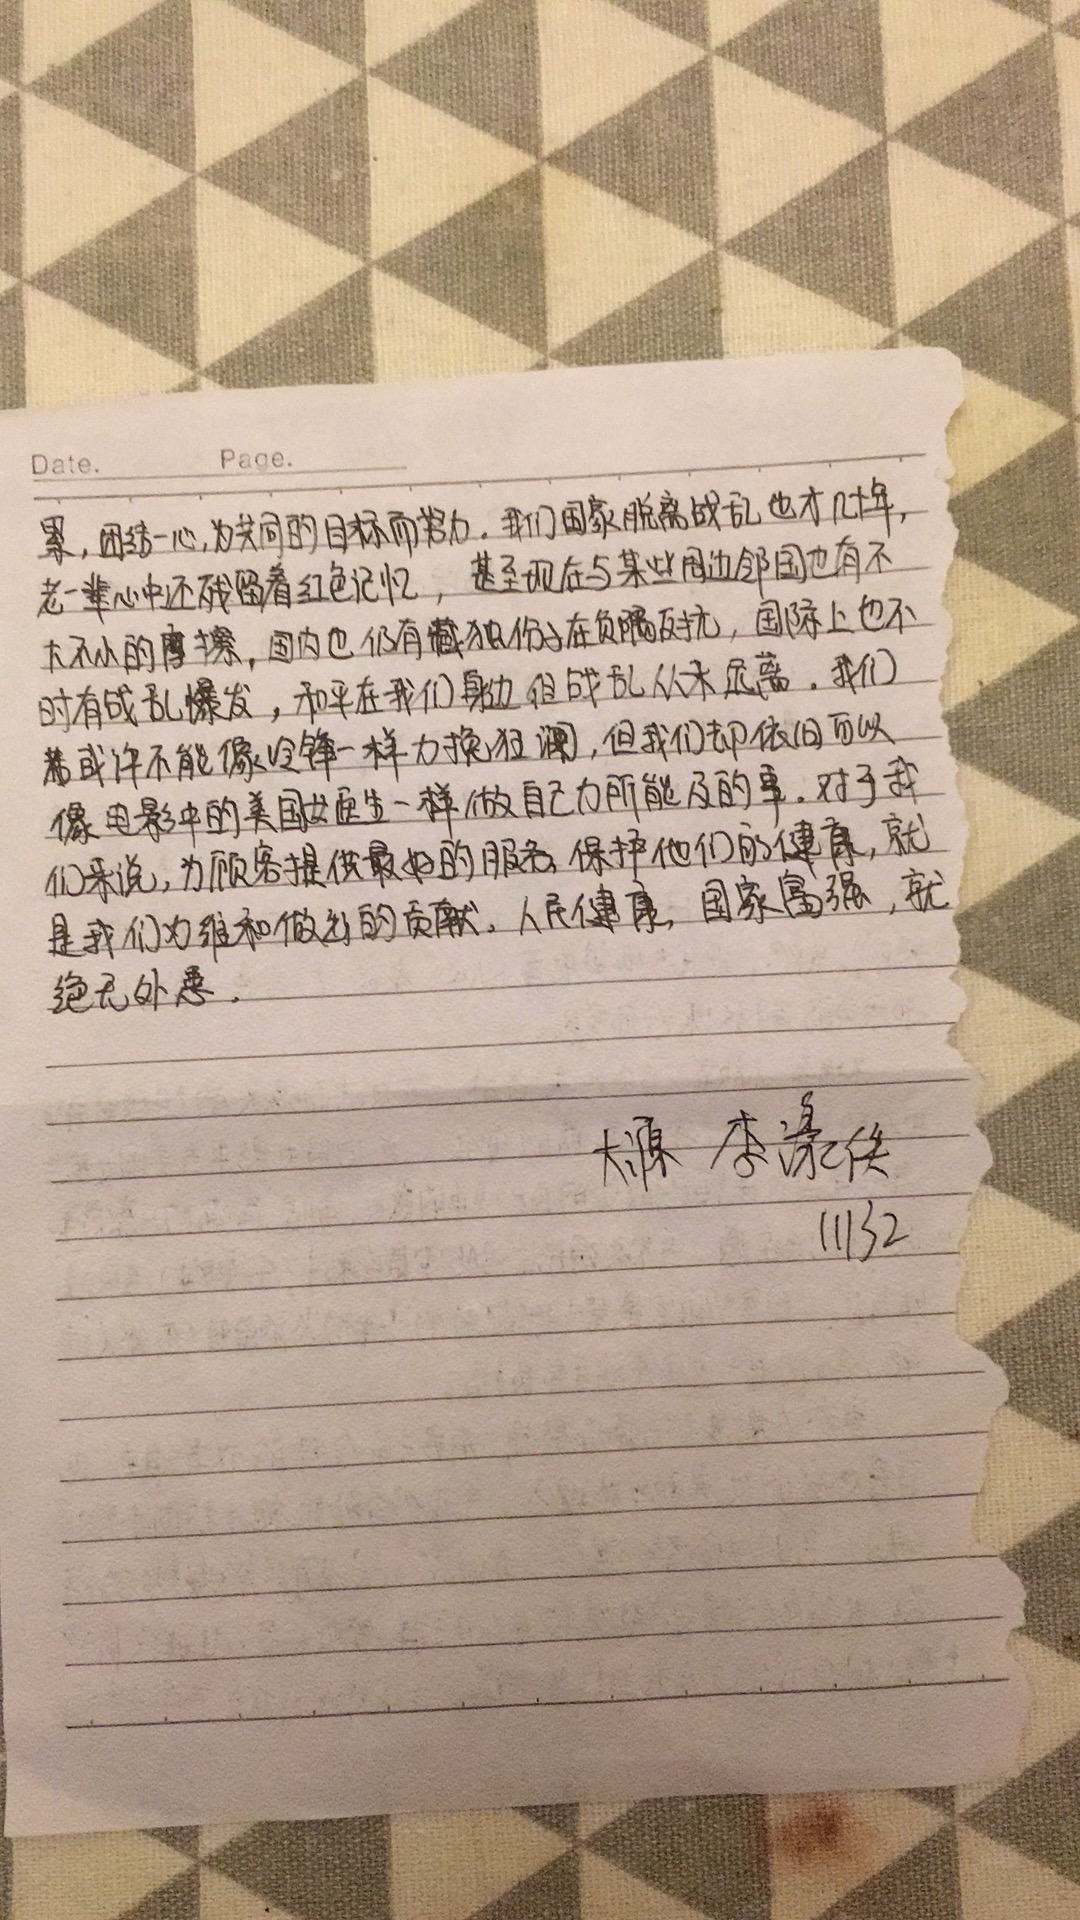 Date. Page.
累，团结一心，为共同的目标而努力。我们国家脱离战乱也才几十年，
老一辈心中还残留着红色记忆，甚至现在与某些周边邻国也有不
大不小的摩擦，国内也仍有藏独份子在负隅反抗，国际上也不
时有战乱爆发，和平在我们身边但战乱从未远离。我们
或许不能像冷锋一样力挽狂澜，但我们却依旧可以
像电影中的美国女医生一样做自己力所能及的事。对于我
们来说，为顾客提供最好的服务，保护他们的健康，就
是我们为维和做出的贡献。人民健康，国家富强，就
绝无外患。
太源 李
11132